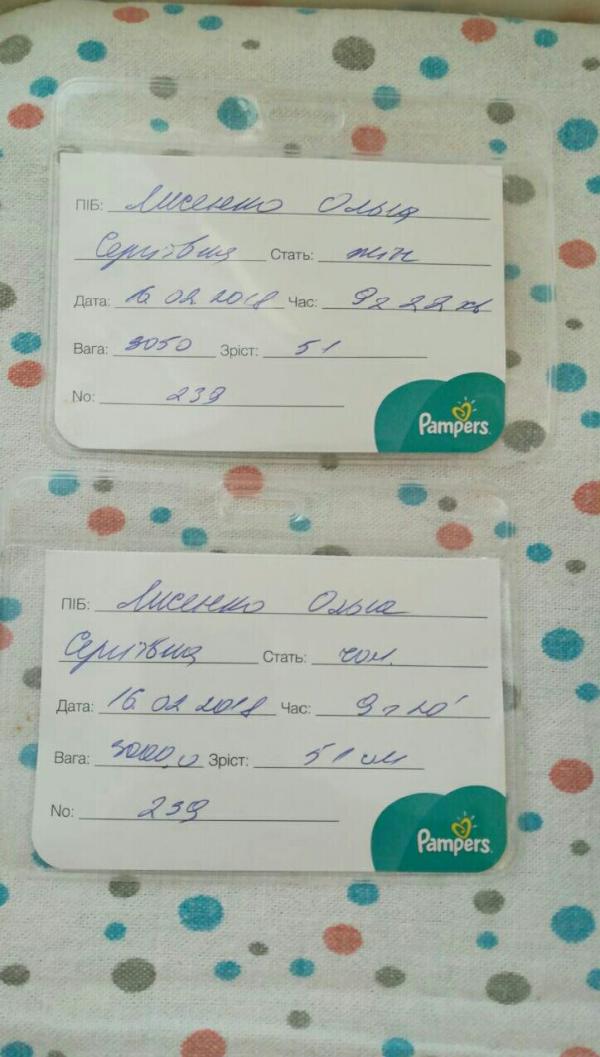 ПІБ: Лисенко Ольга
Сергіївна Стать: жін
Дата: 16 02 2018 Час: 9г 22 хв
Вага: 3050 Зріст: 51
No: 239
Pampers
ПІБ: Лисенко Ольга
Сергіївна Стать: чол.
Дата: 16. 02 2018 Час: 9г 20'
Вага: 3000,0 Зріст: 51 см
No: 239
Pampers